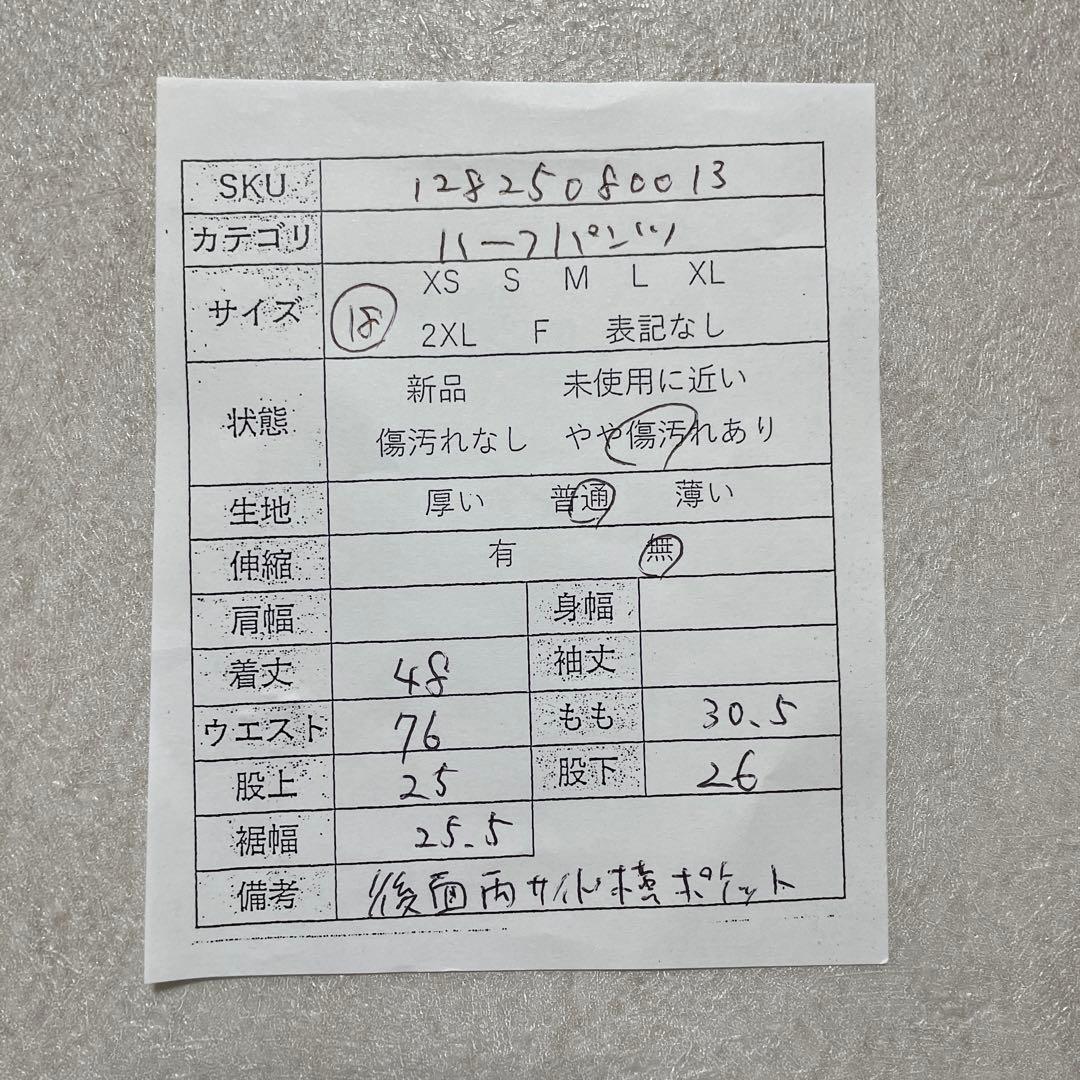 SKU 128250800 13
カテゴリ ハーフパンツ
サイズ 18 XS S M L XL
2XL F 表記なし
状態 新品 未使用に近い
傷汚れなし やや傷汚れあり
生地 厚い 普通 薄い
伸縮 有 無
肩幅 身幅
着丈 48 袖丈
ウエスト 76 もも 30.5
股上 25 股下 26
裾幅 25.5
備考 後面両サイド横ポケット